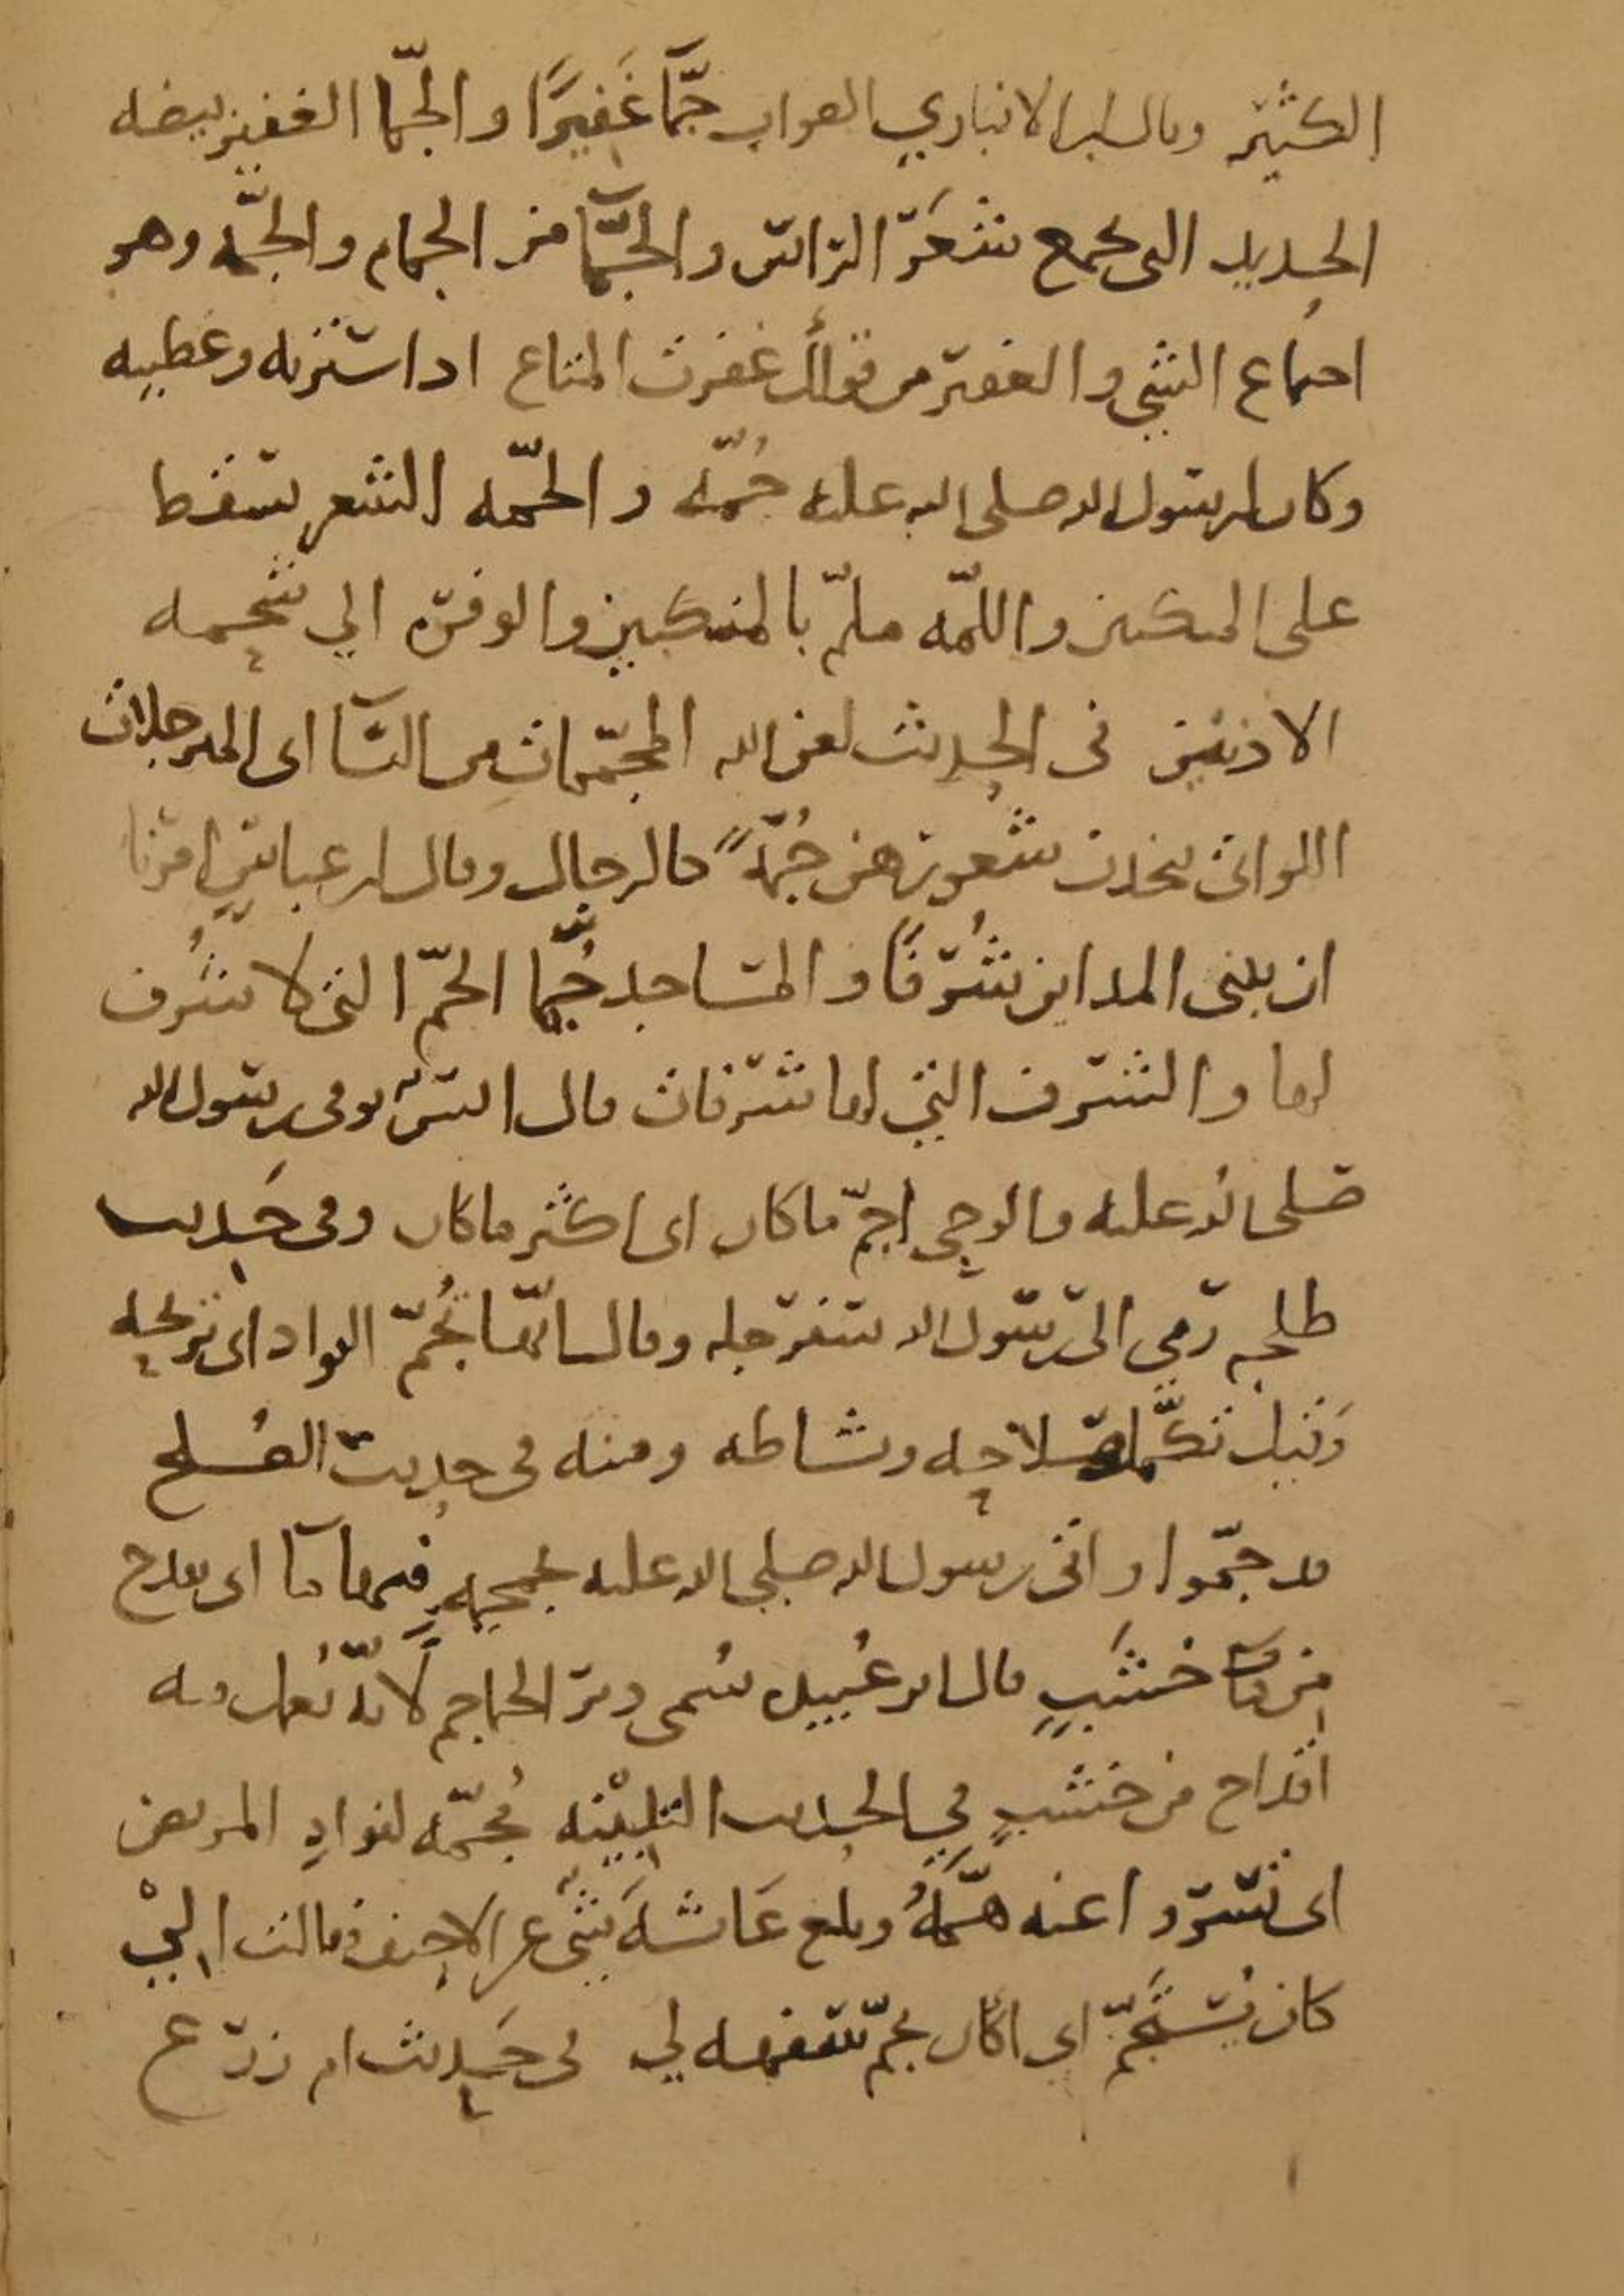 الكثير وقال ابن الانباري الصواب جمّاً غَفيرًا والجمّا الغفير بيضه
الحديد التى تجمع شَعَر الراس والجمّا من الجمام والجمّه وهو
اجتماع الشي والغفير من قولك غفرت المتاع اذا سترته وغطيته
وكان لرسول الله صلى الله عليه جُمّه والجمّه الشعر يسقط
على المنكبين واللمّه ملمّ بالمنكبين والوفره الي شحمه
الاذنين فى الحديث لعن الله المجمّمات من النسآ اى المترجلات
اللواتى يتخذن شعورهن جُمّةً كالرجال وقال ابن عباس امرنا
ان نبنى المداين شُرَفًا والمساجد جُمّا الجمّ التى لا شُرف
لها والشرف التي لها شرفات قال انس توفى رسول الله
صلى الله عليه والوحي اجمّ ما كان اى اكثر ما كان وفى حَديث
طلحه رَمى الىّ رسول الله بسفرجله وقال انّها تُجمّ الفواد اى تريحه
وقيل تكمّل صلاحه ونشاطه ومنه فى حديث الصُلح
قد جمّوا واتى رسول الله صلى الله عليه بجمجمهٍ فيها مآ اى بقدح
من خشَبٍ قال ابو عُبيد سُمى دير الجماجم لانّه تُعمل به
اقداح من خشبٍ في الحديث التلبيْنه مُجمّه لفوادِ المريض
اى تسروا عنه همّهُ وبلغ عَائشهَ شى عن الاحنف فقالت اليْ
كان يَستَجمّ اى اكان يجمّ سفهه لي فى حَديث ام زرع